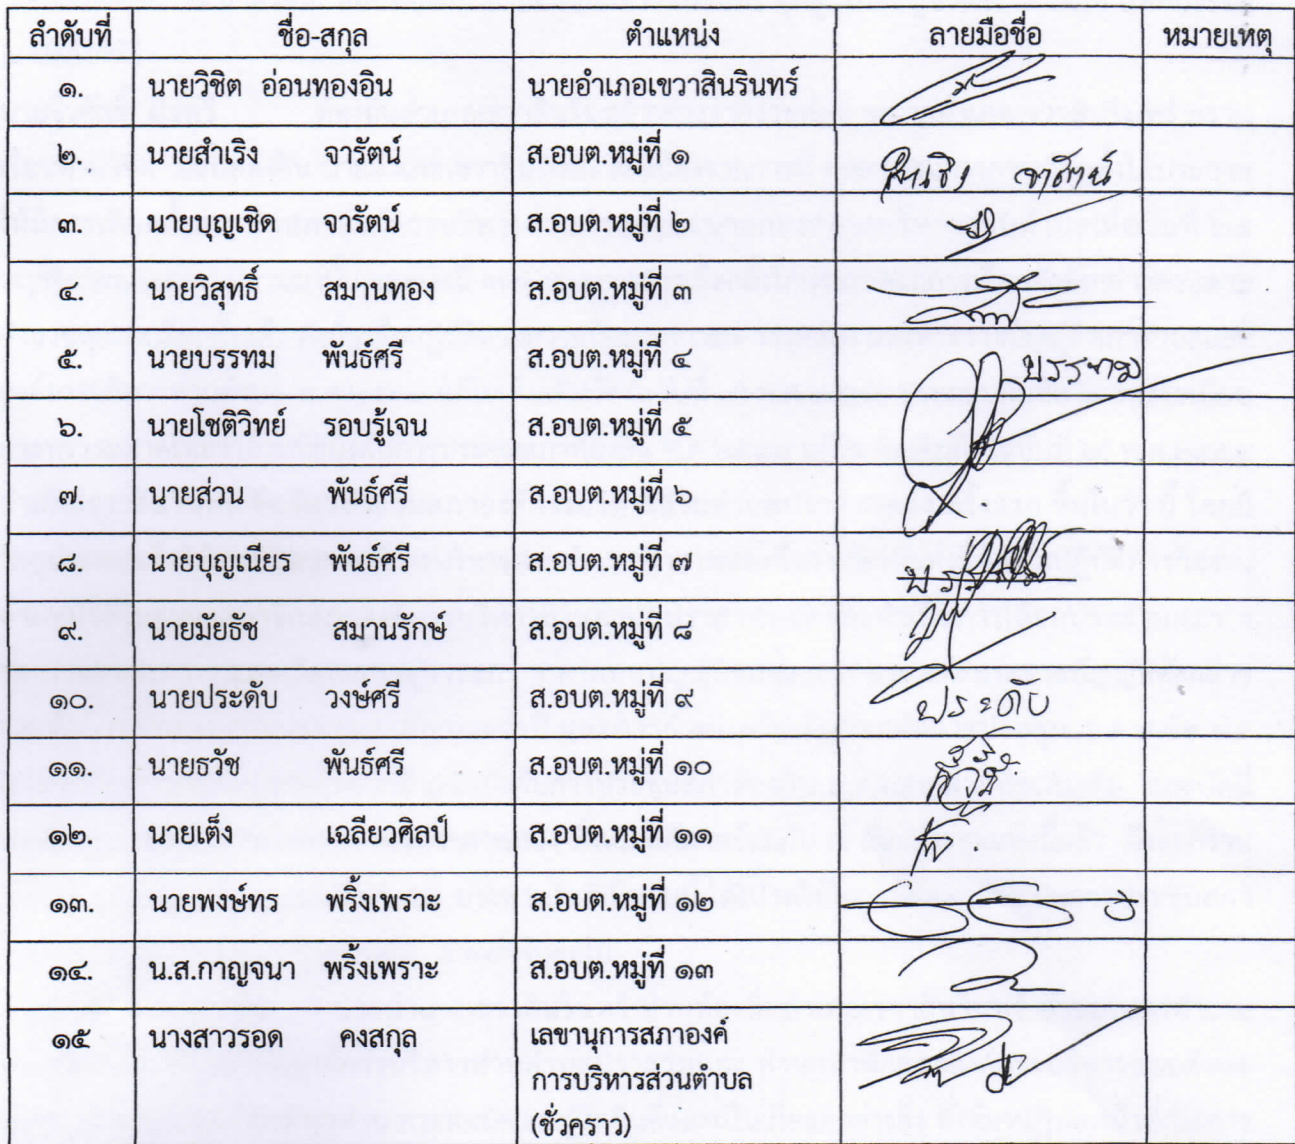 ลำดับที่ ชื่อ-สกุล ตำแหน่ง ลายมือชื่อ หมายเหตุ
๑. นายวิชิต อ่อนทองอิน นายอำเภอเขวาสินรินทร์
๒. นายสำเริง จารัตน์ ส.อบต.หมู่ที่ ๑ สำเริง จารัตน์
๓. นายบุญเชิด จารัตน์ ส.อบต.หมู่ที่ ๒
๔. นายวิสุทธิ์ สมานทอง ส.อบต.หมู่ที่ ๓
๕. นายบรรทม พันธ์ศรี ส.อบต.หมู่ที่ ๔ บรรทม
๖. นายโชติวิทย์ รอบรู้เจน ส.อบต.หมู่ที่ ๕
๗. นายส่วน พันธ์ศรี ส.อบต.หมู่ที่ ๖
๘. นายบุญเนียร พันธ์ศรี ส.อบต.หมู่ที่ ๗
๙. นายมัยธัช สมานรักษ์ ส.อบต.หมู่ที่ ๘
๑๐. นายประดับ วงษ์ศรี ส.อบต.หมู่ที่ ๙ ประดับ
๑๑. นายธวัช พันธ์ศรี ส.อบต.หมู่ที่ ๑๐
๑๒. นายเต็ง เฉลียวศิลป์ ส.อบต.หมู่ที่ ๑๑
๑๓. นายพงษ์ทร พริ้งเพราะ ส.อบต.หมู่ที่ ๑๒
๑๔. น.ส.กาญจนา พริ้งเพราะ ส.อบต.หมู่ที่ ๑๓
๑๕ นางสาวรอด คงสกุล เลขานุการสภาองค์
การบริหารส่วนตำบล
(ชั่วคราว)